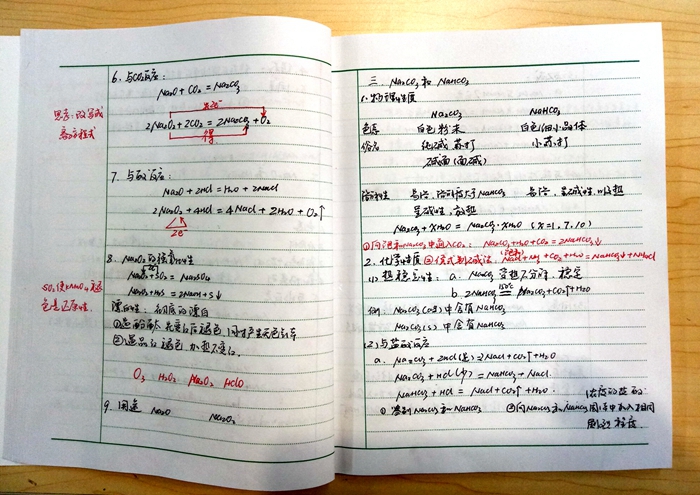 6. 与CO₂反应:
Na₂O + CO₂ = Na₂CO₃
失2e⁻
2Na₂O₂ + 2CO₂ = 2Na₂CO₃ + O₂
得
思考: 改写成
离子方程式
7. 与酸反应:
Na₂O + 2HCl = H₂O + 2NaCl
2Na₂O₂ + 4HCl = 4NaCl + 2H₂O + O₂↑
2e⁻
8. Na₂O₂的强氧化性
Na₂O₂ + SO₂ = Na₂SO₄
Na₂O₂ + H₂S = 2NaOH + S↓
SO₂使KMnO₄褪
色是还原性.
漂白性: 彻底的漂白
O₃ H₂O₂ Na₂O₂ HClO
9. 用途 Na₂O Na₂O₂
三. Na₂CO₃ 和 NaHCO₃
1. 物理性质
Na₂CO₃ NaHCO₃
色态 白色粉末 白色细小晶体
俗名 纯碱. 苏打 小苏打
碱面(面碱)
溶解性 易溶, 溶解度大于NaHCO₃ 易溶, 呈碱性, 吸热
呈碱性, 放热
Na₂CO₃ + xH₂O = Na₂CO₃·xH₂O (x=1, 7, 10)
①向饱和Na₂CO₃中通入CO₂: Na₂CO₃+H₂O+CO₂=2NaHCO₃↓
2. 化学性质 ②侯式制碱法: NaCl+NH₃+CO₂+H₂O=NaHCO₃↓+NH₄Cl
(1)热稳定性: a. Na₂CO₃ 受热不分解. 稳定
b. 2NaHCO₃ =150℃= Na₂CO₃+CO₂↑+H₂O
例: Na₂CO₃(aq)中含有NaHCO₃
Na₂CO₃(s)中含有NaHCO₃
(2)与盐酸反应
a. Na₂CO₃ + 2HCl(过) = 2NaCl + CO₂↑ + H₂O
Na₂CO₃ + HCl(少) = NaHCO₃ + NaCl.
NaHCO₃ + HCl = NaCl + CO₂↑ + H₂O.
浓度的盐酸:
①鉴别Na₂CO₃和NaHCO₃ ②向Na₂CO₃和NaHCO₃固体中加入相同
剧烈程度.